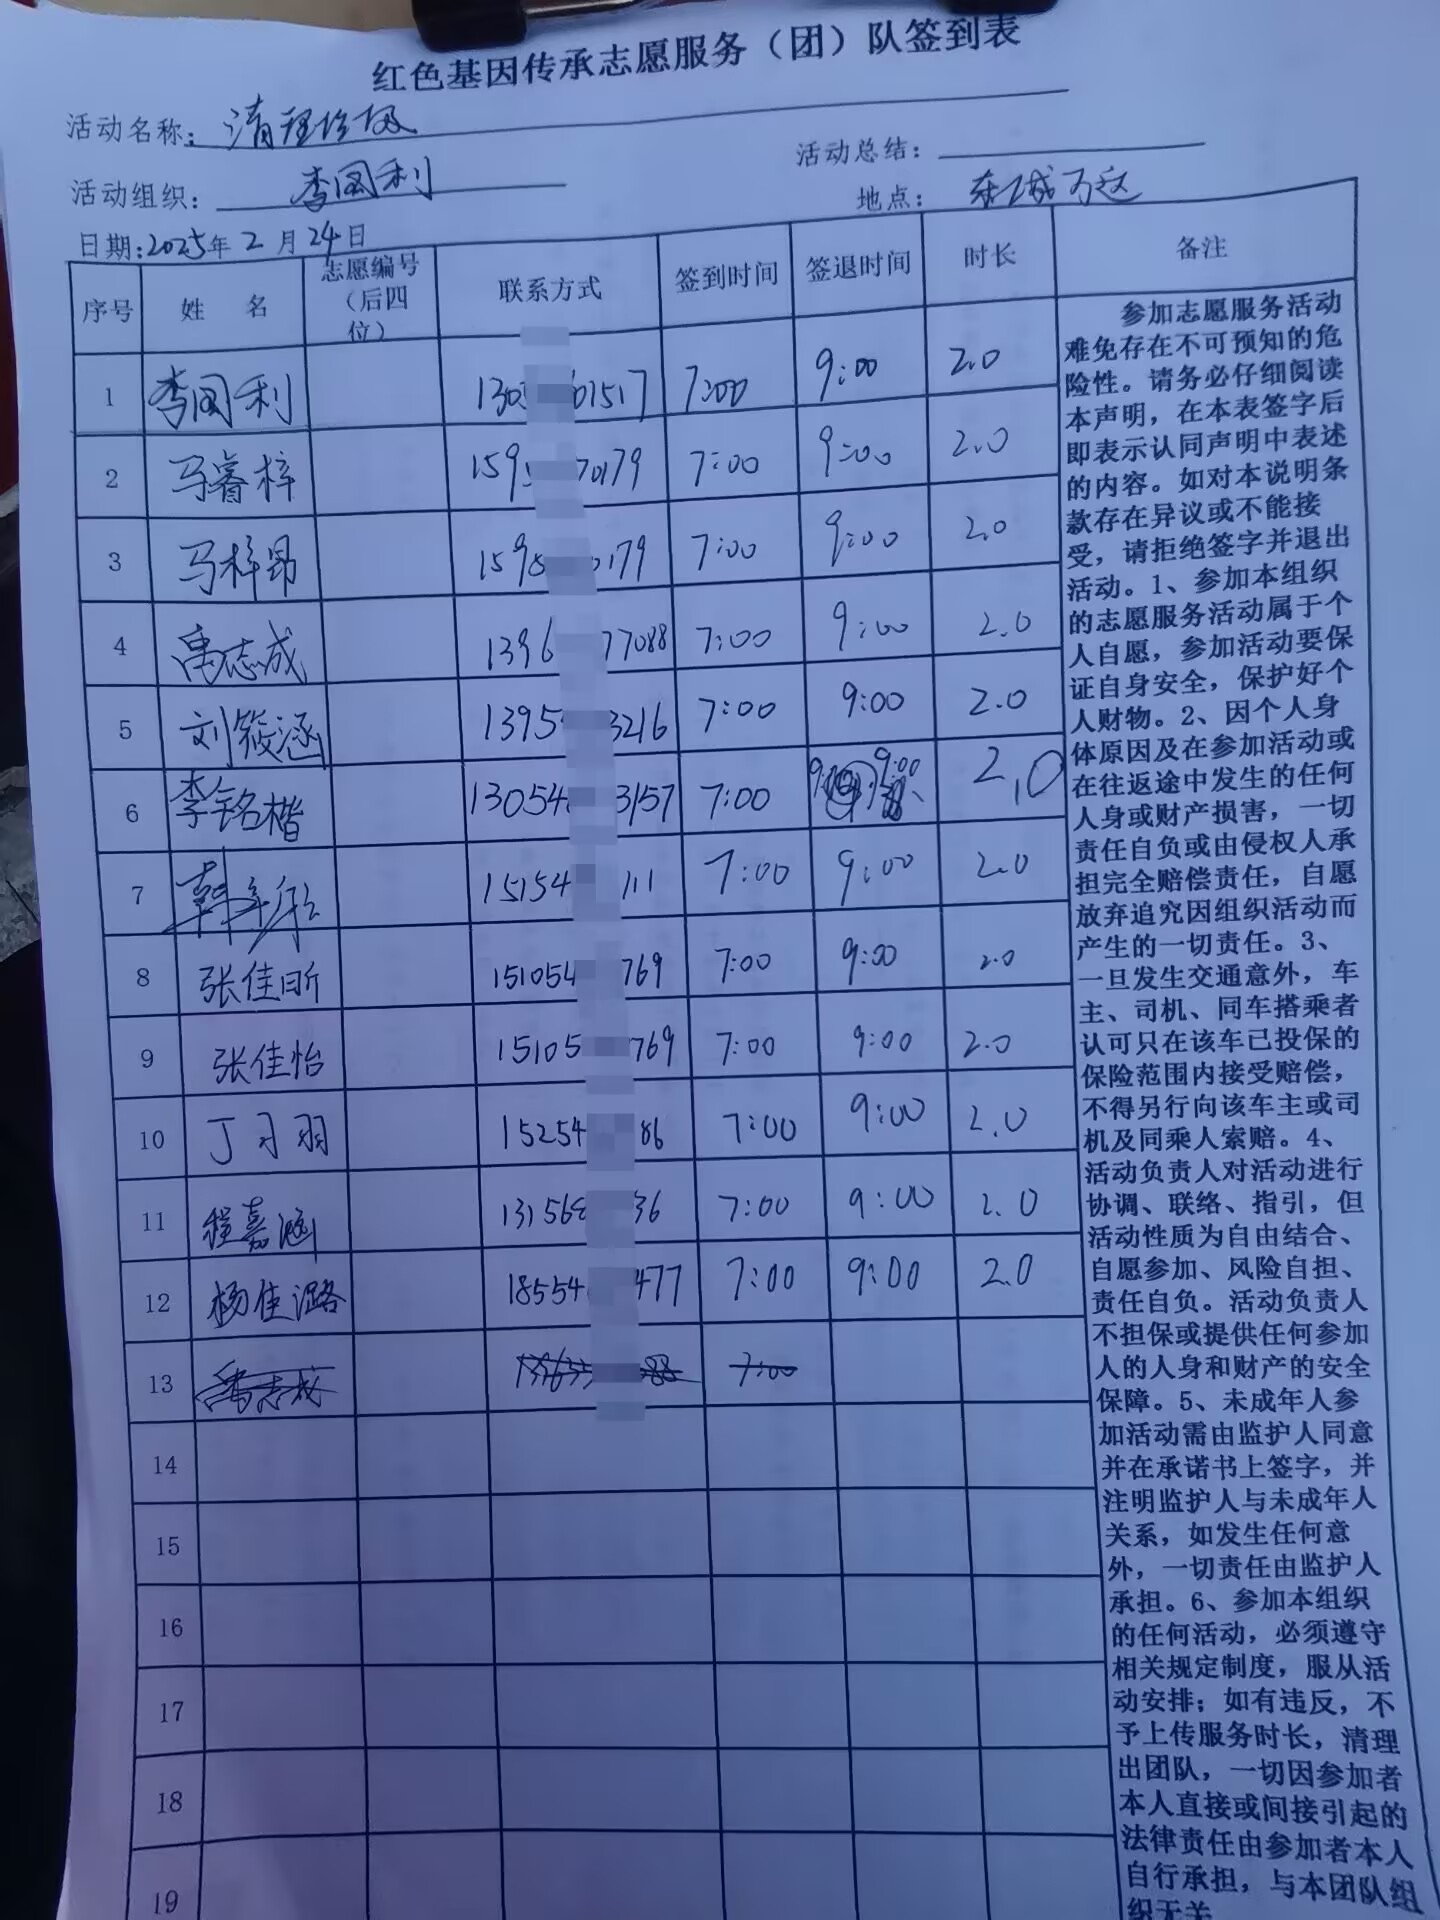 红色基因传承志愿服务（团）队签到表
活动名称：清理垃圾
活动总结：
活动组织：李国利
地点：东城万达
日期:2025年2月24日
序号 姓名 志愿编号（后四位） 联系方式 签到时间 签退时间 时长 备注
1 李国利 130 01517 7:00 9:00 2.0
2 马睿梓 159 70179 7:00 9:00 2.0
3 马梓昂 1595 0179 7:00 9:00 2.0
4 禹志成 1396 77088 7:00 9:00 2.0
5 刘筱涵 1395 3216 7:00 9:00 2.0
6 李铭楷 13054 3157 7:00 9:00 2.0
7 15154 111 7:00 9:00 2.0
8 张佳昕 151054 769 7:00 9:00 2.0
9 张佳怡 15105 769 7:00 9:00 2.0
10 丁习羽 15254 86 7:00 9:00 2.0
11 程嘉涵 13156 36 7:00 9:00 2.0
12 杨佳潞 18554 477 7:00 9:00 2.0
13 禹志成 7:00
14
15
16
17
18
19
参加志愿服务活动
难免存在不可预知的危
险性。请务必仔细阅读
本声明，在本表签字后
即表示认同声明中表述
的内容。如对本说明条
款存在异议或不能接
受，请拒绝签字并退出
活动。1、参加本组织
的志愿服务活动属于个
人自愿，参加活动要保
证自身安全，保护好个
人财物。2、因个人身
体原因及在参加活动或
在往返途中发生的任何
人身或财产损害，一切
责任自负或由侵权人承
担完全赔偿责任，自愿
放弃追究因组织活动而
产生的一切责任。3、
一旦发生交通意外，车
主、司机、同车搭乘者
认可只在该车已投保的
保险范围内接受赔偿，
不得另行向该车主或司
机及同乘人索赔。4、
活动负责人对活动进行
协调、联络、指引，但
活动性质为自由结合、
自愿参加、风险自担、
责任自负。活动负责人
不担保或提供任何参加
人的人身和财产的安全
保障。5、未成年人参
加活动需由监护人同意
并在承诺书上签字，并
注明监护人与未成年人
关系，如发生任何意
外，一切责任由监护人
承担。6、参加本组织
的任何活动，必须遵守
相关规定制度，服从活
动安排；如有违反，不
予上传服务时长，清理
出团队，一切因参加者
本人直接或间接引起的
法律责任由参加者本人
自行承担，与本团队组
织无关